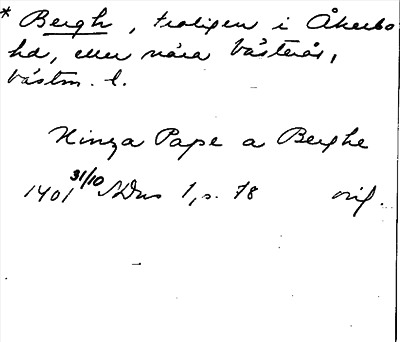 * Bergh, troligen i Åkerbo
hd, eller nära Västerås,
Västm. l.
Hinza Pape a Berghe
1401 31/10 SDns 1, s. 78 orig.